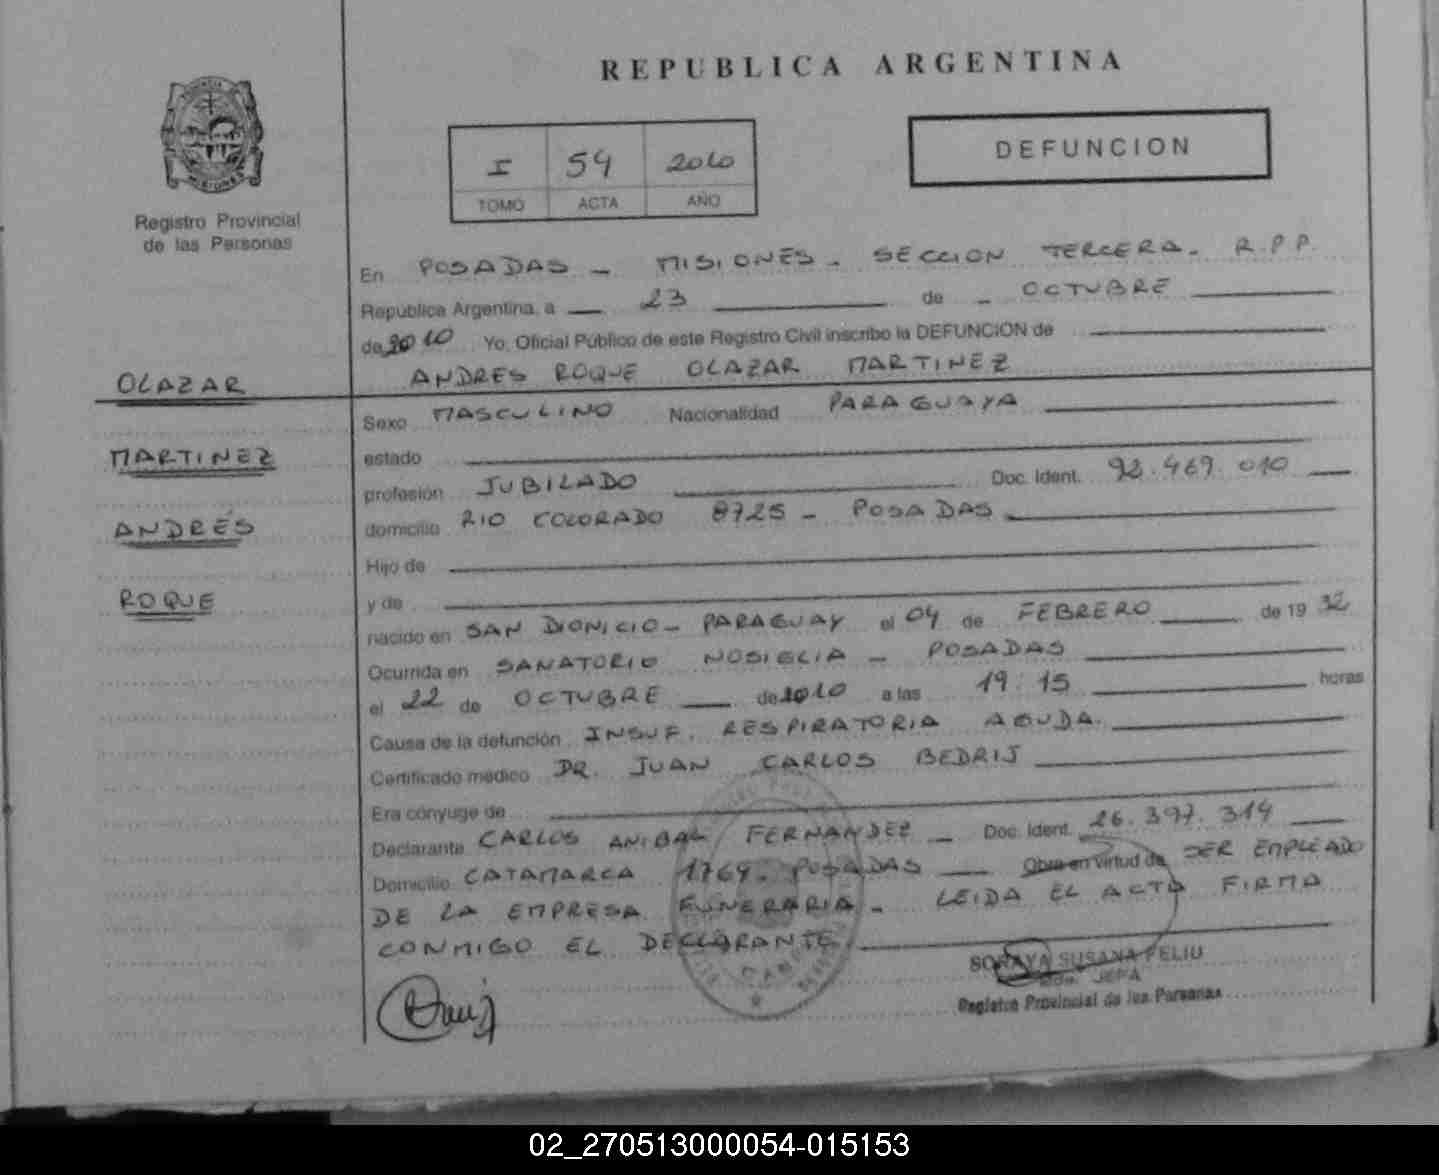 REPUBLICA ARGENTINA
PROVINCIA
MISIONES
Registro Provincial
de las Personas
I 54 2010
TOMO ACTA AÑO
DEFUNCION
En POSADAS - MISIONES - SECCION TERCERA - R.P.P.
República Argentina, a 23 de OCTUBRE
de 2010 Yo, Oficial Público de este Registro Civil inscribo la DEFUNCION de
ANDRES ROQUE OLAZAR MARTINEZ
OLAZAR
MARTINEZ
ANDRÉS
ROQUE
Sexo MASCULINO Nacionalidad PARAGUAYA
estado
profesión JUBILADO Doc. Ident. 92.469.010
domicilio RIO COLORADO 8725 - POSADAS
Hijo de
y de
nacido en SAN DIONICIO - PARAGUAY el 04 de FEBRERO de 19 32
Ocurrida en SANATORIO NOSIGLIA - POSADAS
el 22 de OCTUBRE de 2010 a las 19:15 horas
Causa de la defunción INSUF. RESPIRATORIA AGUDA.
Certificado médico DR. JUAN CARLOS BEDRIJ
Era cónyuge de
Declarante CARLOS ANIBAL FERNANDEZ - Doc. Ident. 26.397.314
Domicilio CATAMARCA 1769. POSADAS Obra en virtud de SER EMPLEADO
DE LA EMPRESA FUNERARIA - LEIDA EL ACTA FIRMA
CONMIGO EL DECLARANTE.
SORAYA SUSANA FELIU
JEFA
Registro Provincial de las Personas
02_270513000054-015153